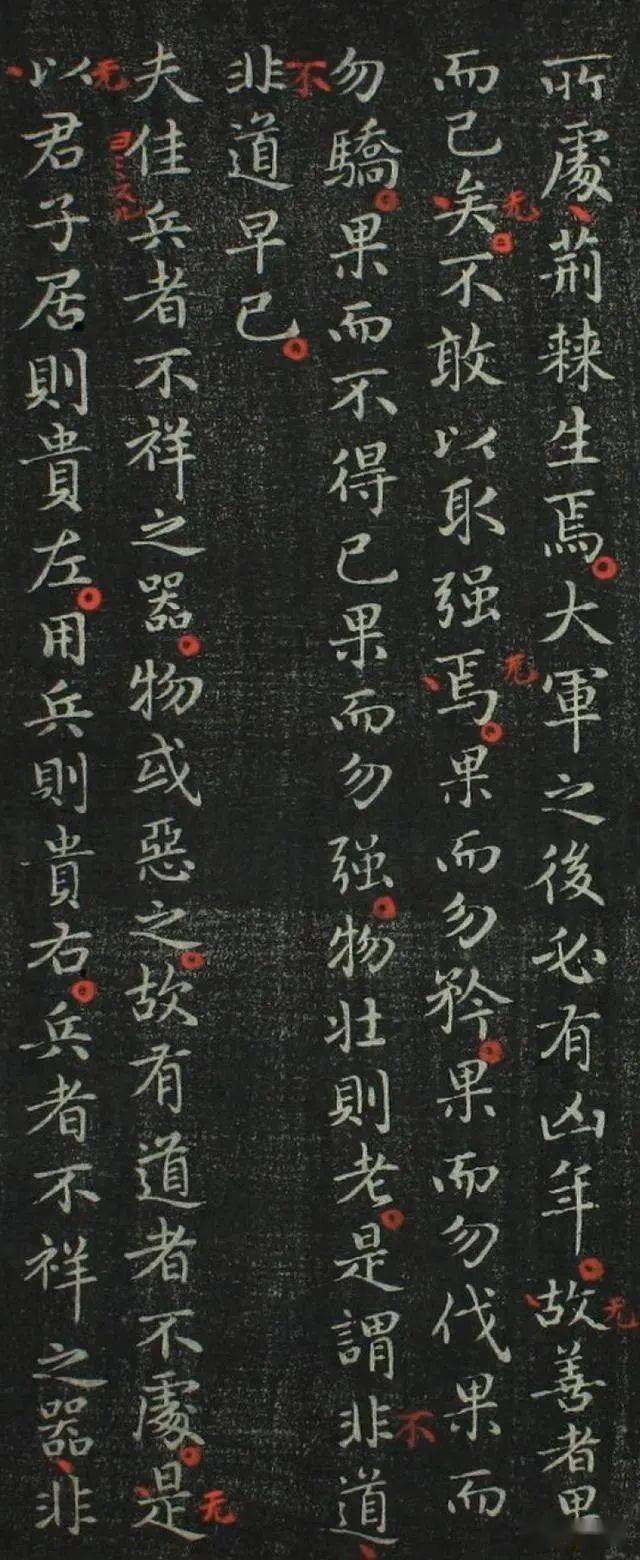 所處荊棘生焉大軍之後必有凶年故善者果
无
而已矣不敢以取强焉果而勿矜果而勿伐果而
无
无
勿驕果而不得已果而勿强物壯則老是謂非道
不
非道早已
不
夫佳兵者不祥之器物或惡之故有道者不處是
无
以君子居則貴左用兵則貴右兵者不祥之器非
无